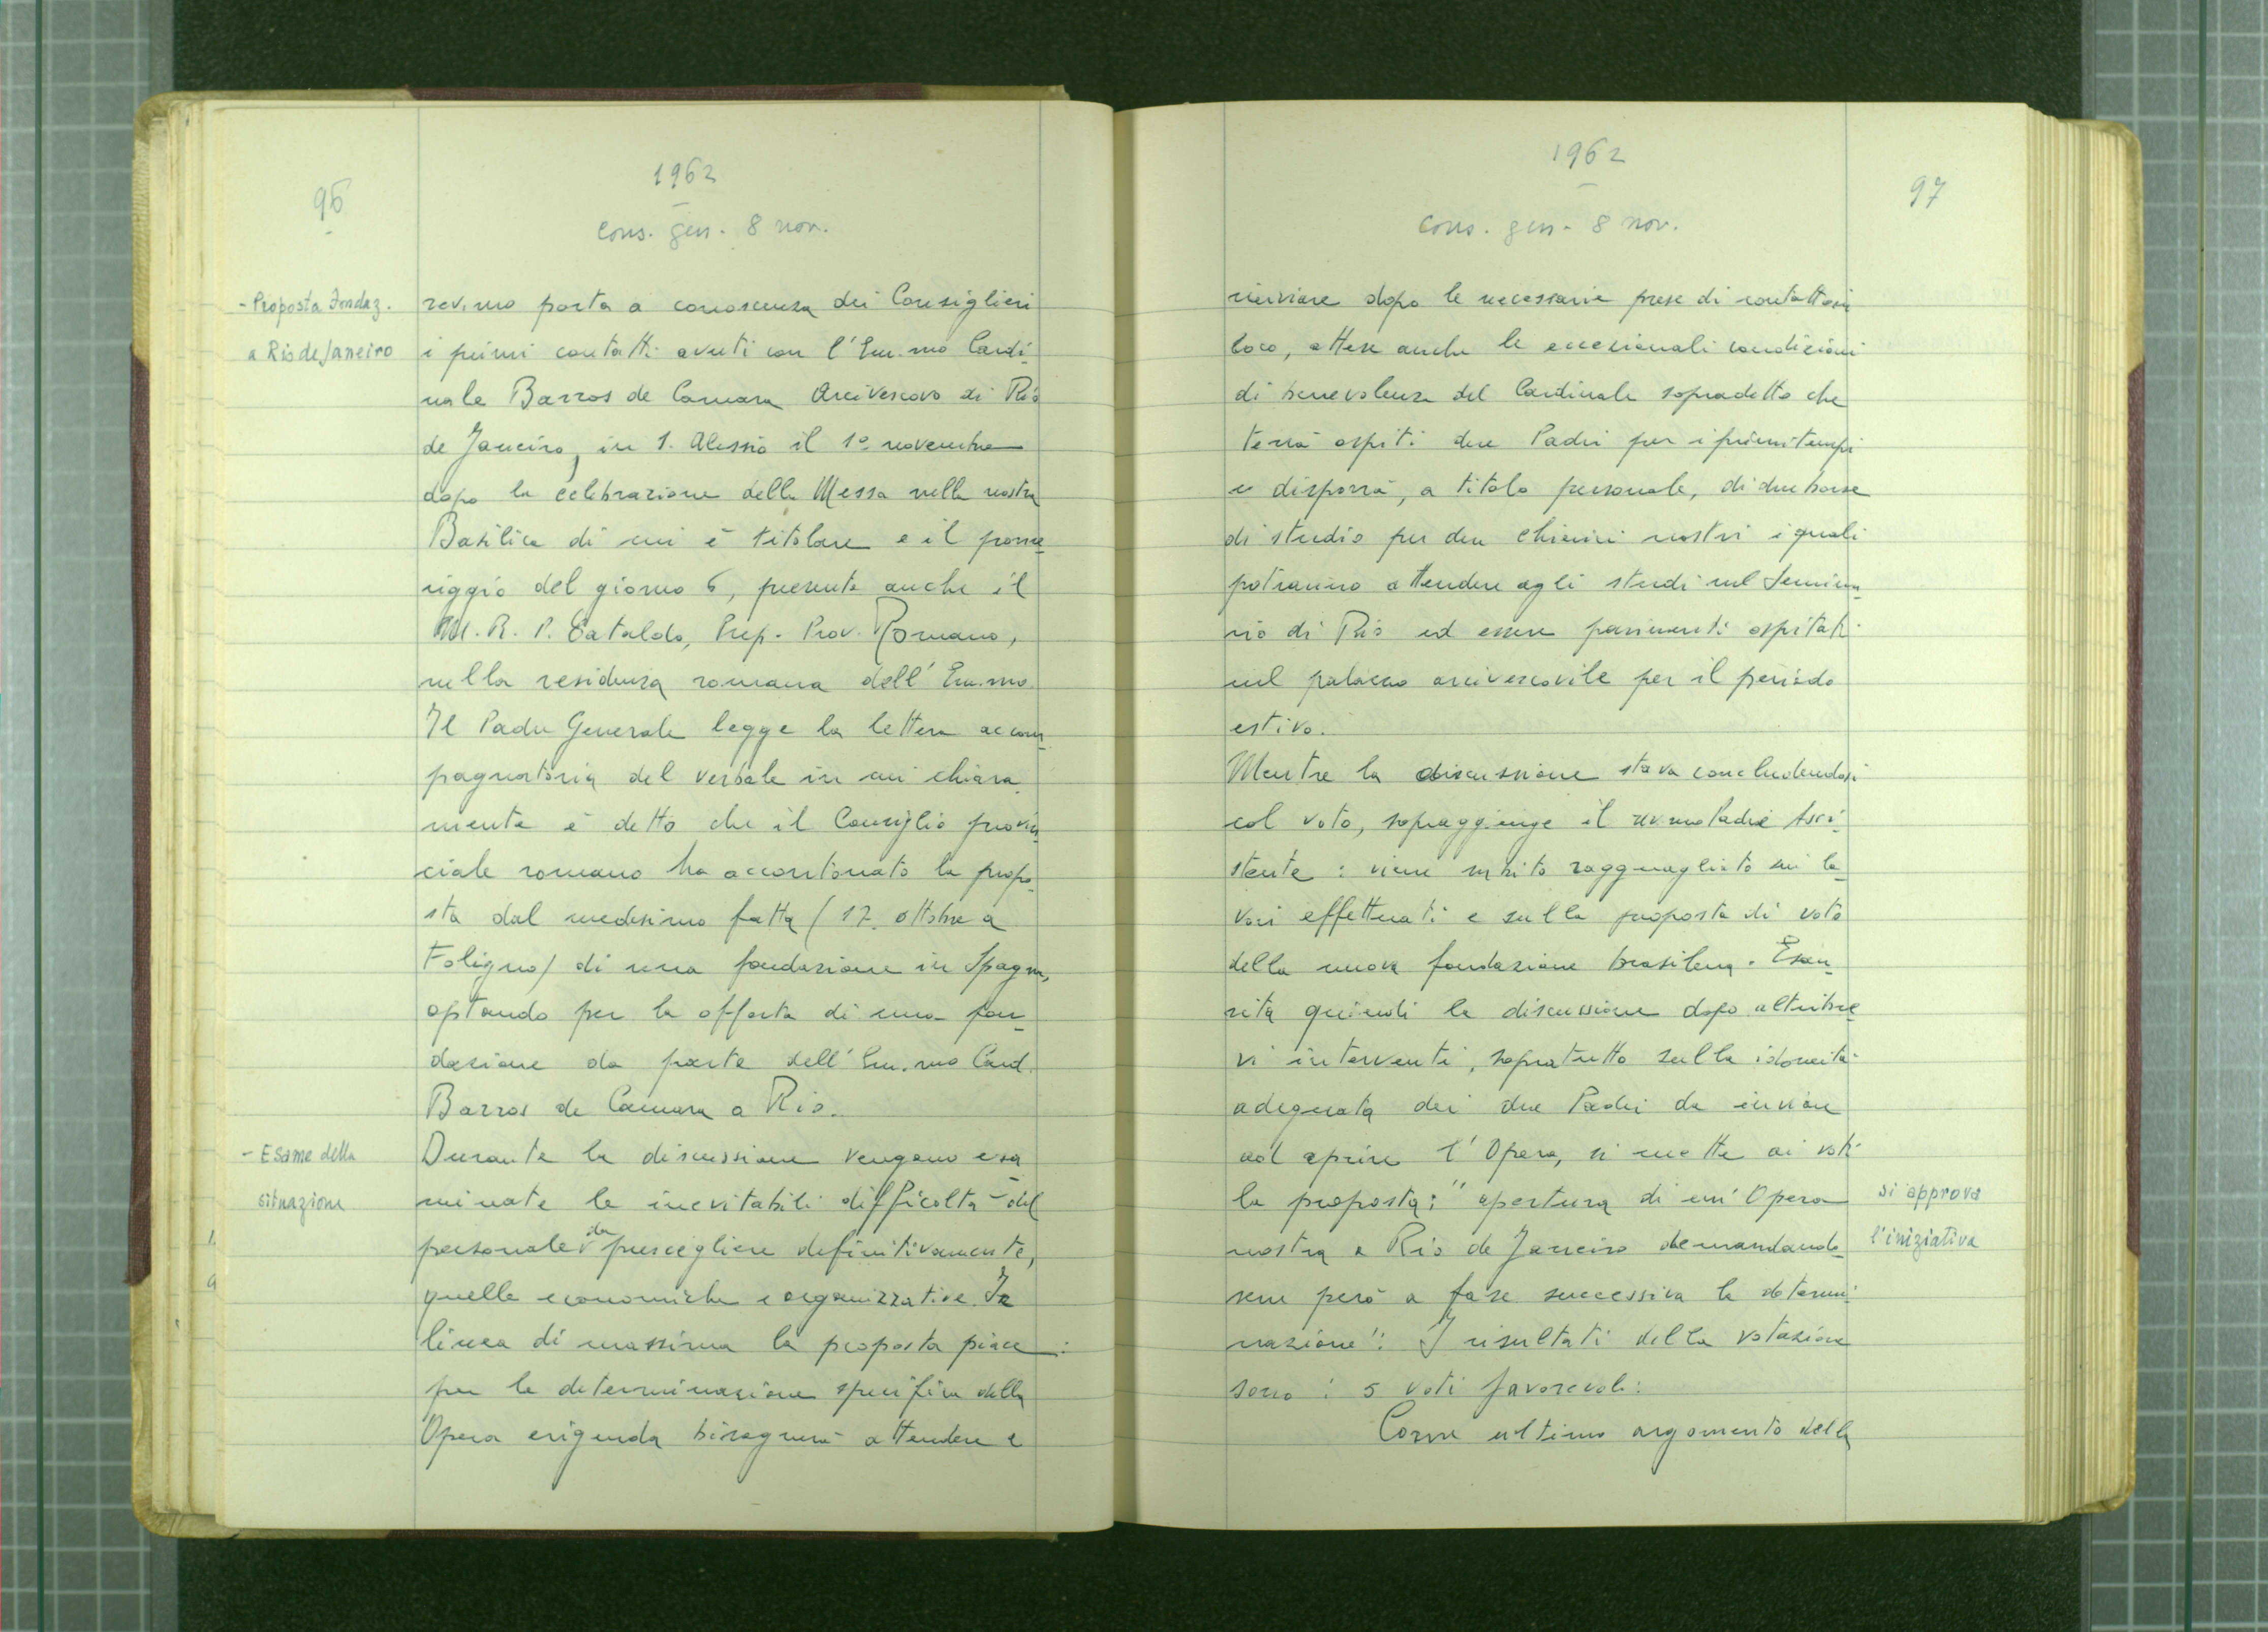 96
1962
cons. gen. 8 nov.
- Proposta Fondaz.
a Rio de Janeiro
rev.mo porta a conoscenza dei Consiglieri
i primi contatti avuti con l'Em.mo Cardi-
nale Barros de Camara Arcivescovo di Rio
de Janeiro, in S. Alessio il 1º novembre
dopo la celebrazione della Messa nella nostra
Basilica di cui è titolare e il pome-
riggio del giorno 6, presente anche il
M. R. P. Cataldo, Prep. Prov. Romano,
nella residenza romana dell'Em.mo.
Il Padre Generale legge la lettera accom-
pagnatoria del verbale in cui chiara-
mente è detto che il Consiglio provin-
ciale romano ha accantonato la propo-
sta dal medesimo fatta (17. ottobre a
Foligno) di una fondazione in Spagna,
optando per la offerta di una fon-
dazione da parte dell'Em.mo Card.
Barros de Camara a Rio.
- Esame della
situazione
Durante la discussione vengono esa-
minate le inevitabili difficoltà del
personale da prescegliere definitivamente,
quelle economiche e organizzative. In
linea di massima la proposta piace:
per la determinazione specifica della
Opera erigenda bisognerà attendere e
1962
cons. gen. 8 nov.
97
rinviare dopo le necessarie prese di contatto in
loco, attese anche le eccezionali condizioni
di benevolenza del Cardinale sopradetto che
terrà ospiti due Padri per i primi tempi
e disporrà, a titolo personale, di due borse
di studio per due chierici nostri i quali
potranno attendere agli studi nel Semina-
rio di Rio ed essere parimenti ospitati
nel palazzo arcivescovile per il periodo
estivo.
Mentre la discussione stava concludendosi
col voto, sopraggiunge il rev.mo Padre Assi-
stente: viene subito ragguagliato sui la-
vori effettuati e sulla proposta di voto
della nuova fondazione brasilena. Esau-
rita quindi la discussione dopo altri bre-
vi interventi, sopratutto sulla idoneità
adeguata dei due Padri da inviare
ad aprire l'Opera, si mette ai voti
la proposta: "apertura di un'Opera
nostra a Rio de Janeiro demandando-
sene però a fase successiva la determi-
nazione": I risultati della votazione
sono: 5 voti favorevoli:
si approva
l'iniziativa
Come ultimo argomento della